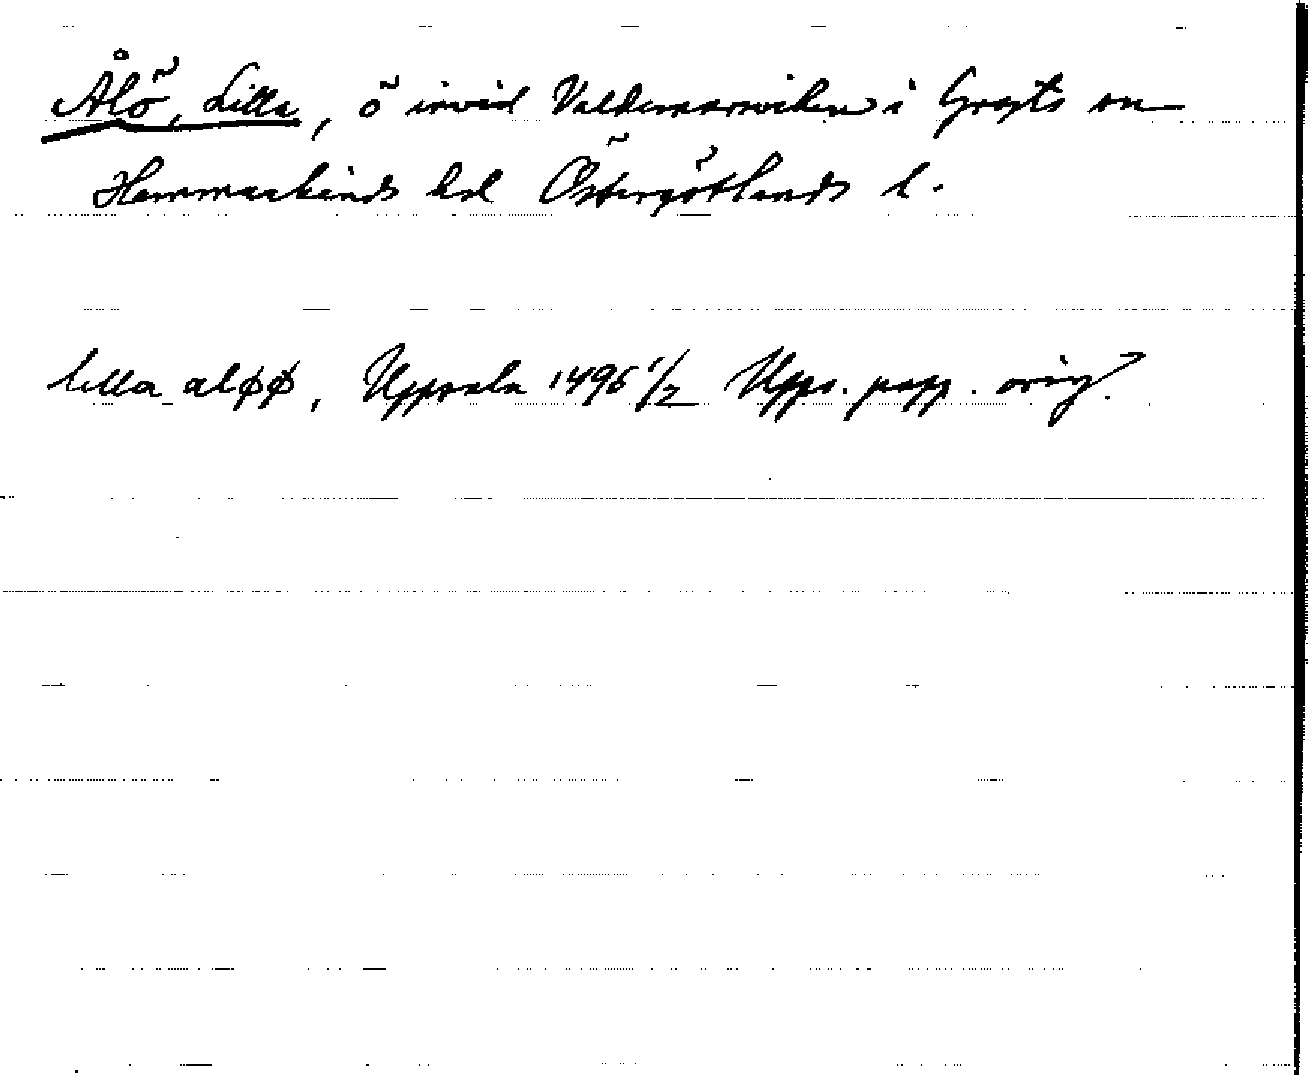 Ålö, Lilla, ö invid Valdemarsviken i Gryts sn
Hammarkinds hd Östergötlands l.
lilla aløø, Uppsala 1496 1/2 Upps. papp. orig.